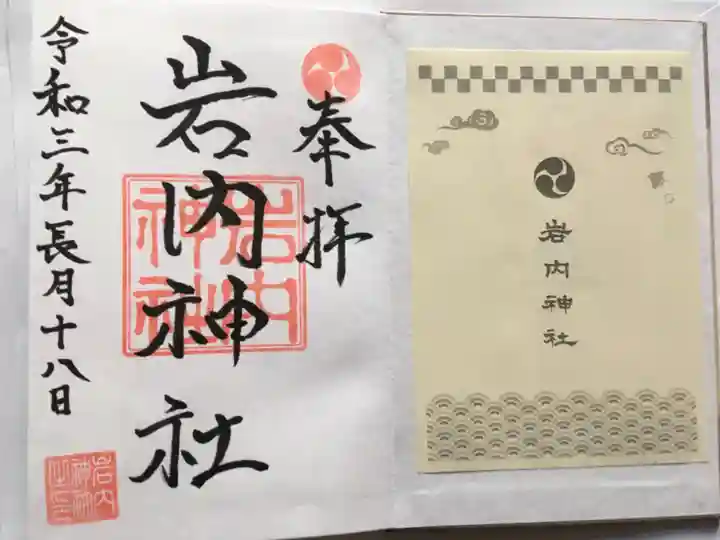 奉拝
岩内神社
岩内
神社
令和三年長月十八日
岩内神社